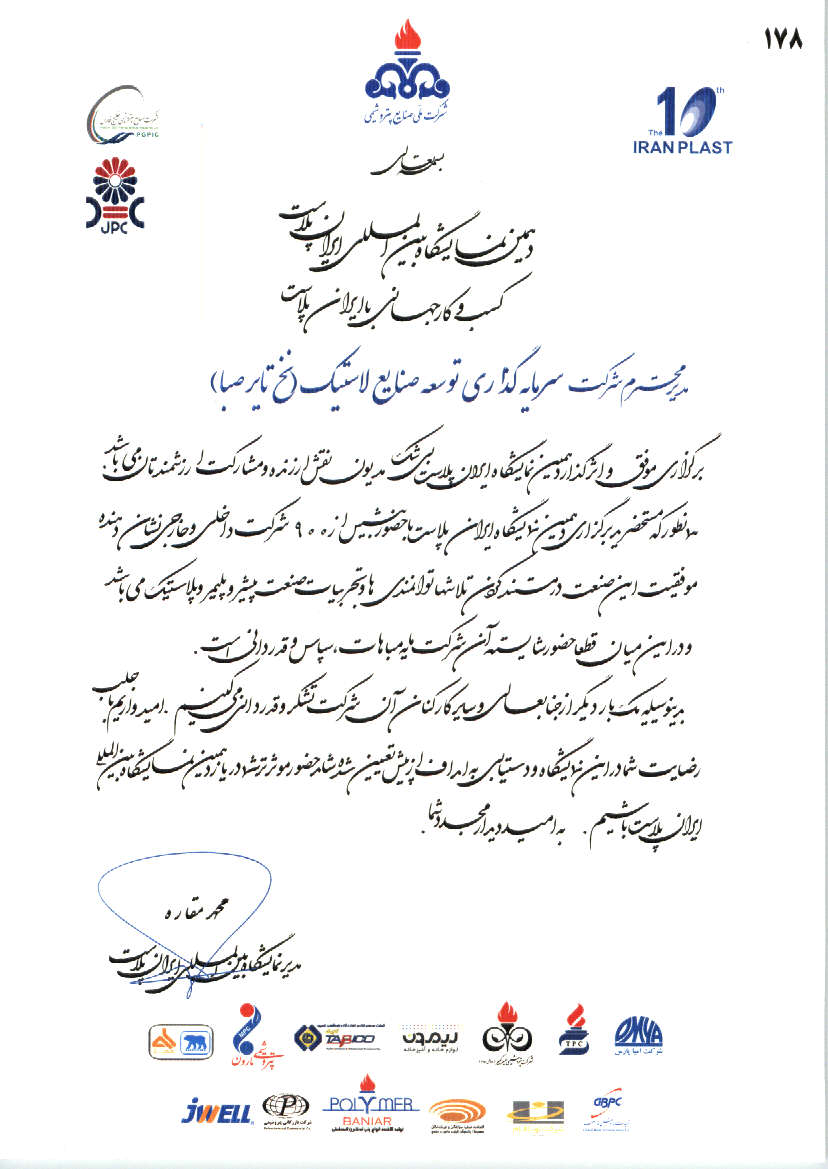 ۱۷۸
شرکت ملی صنایع پتروشیمی
PGPIC
JPC
The 10th
IRAN PLAST
بسمه تعالی
دهمین نمایشگاه بین المللی ایران پلاست
کسب و کار جهانی با ایران پلاست
مدیر محترم شرکت سرمایه گذاری توسعه صنایع لاستیک (نخ تایر صبا)
برگزاری موفق و اثرگذار دهمین نمایشگاه ایران پلاست بی شک مدیون نقش ارزنده و مشارکت ارزشمندتان می باشد.
همانطور که مستحضرید برگزاری دهمین نمایشگاه ایران پلاست با حضور بیش از ۹۰۰ شرکت داخلی و خارجی نشان دهنده
موفقیت این صنعت در مستند کردن تلاشها توانمندی ها و تجربیات صنعت پیشرو پلیمر و پلاستیک می باشد
و در این میان قطعا حضور شایسته آن شرکت مایه مباهات، سپاس و قدردانی است.
بدینوسیله یک بار دیگر از جنابعالی و سایر کارکنان آن شرکت تشکر و قدردانی می کنیم. امیدواریم با جلب
رضایت شما در این نمایشگاه و دستیابی به اهداف از پیش تعیین شده شاهد حضور موثرتر شما در یازدهمین نمایشگاه بین المللی
ایران پلاست باشیم. به امید دیدار مجدد شما.
مدیر نمایشگاه بین المللی ایران پلاست
NPC
پتروشیمی مارون
TABICO
بیمون
لوازم خانه و آشپزخانه
TPC
OMYA
شرکت امیا پارس
JWELL
شرکت بازرگانی پتروشیمی
POLYMER
BANIAR
ABPC